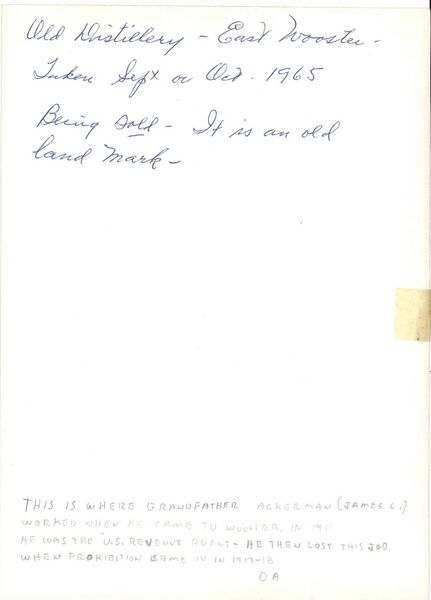 Old Distillery - East Wooster -
Taken Sept or Oct. 1965
Being sold - It is an old
land mark -
THIS IS WHERE GRANDFATHER ACKERMAN (JAMES L.)
WORKED WHEN HE CAME TO WOOSTER, IN 1911
HE WAS THE U.S. REVENUE AGENT - HE THEN LOST THIS JOB
WHEN PROHIBITION CAME IN IN 1917-18
DA